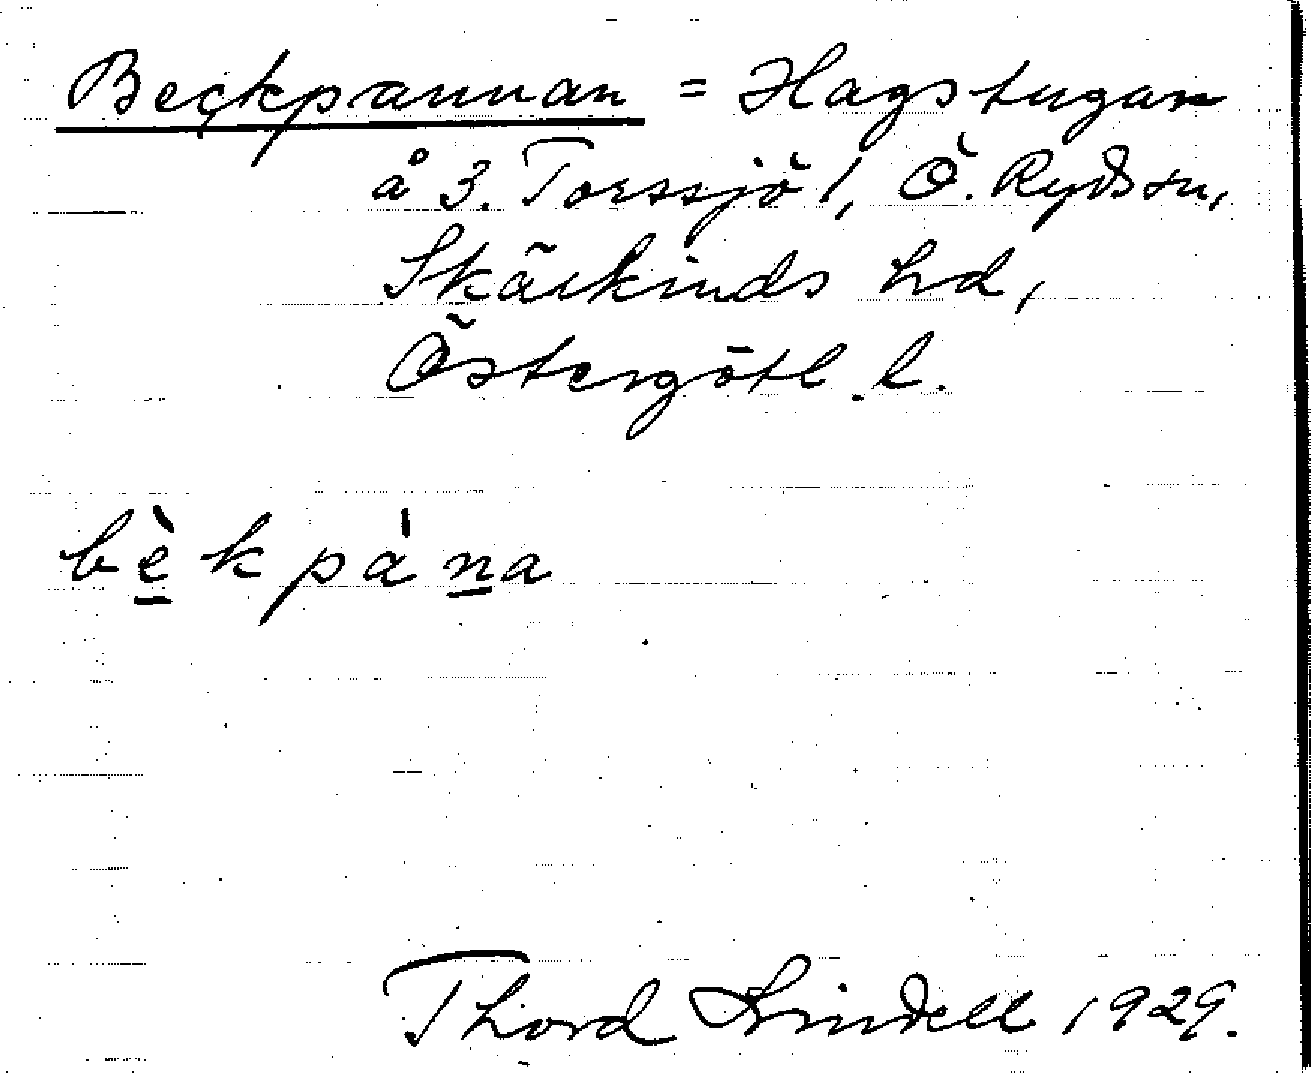 Beckpannan = Hagstugan
å 3. Torssjö 1, Ö. Ryds sn,
Skärkinds hd,
Östergötl. l.
bèkpána
Thord Lindell 1929.